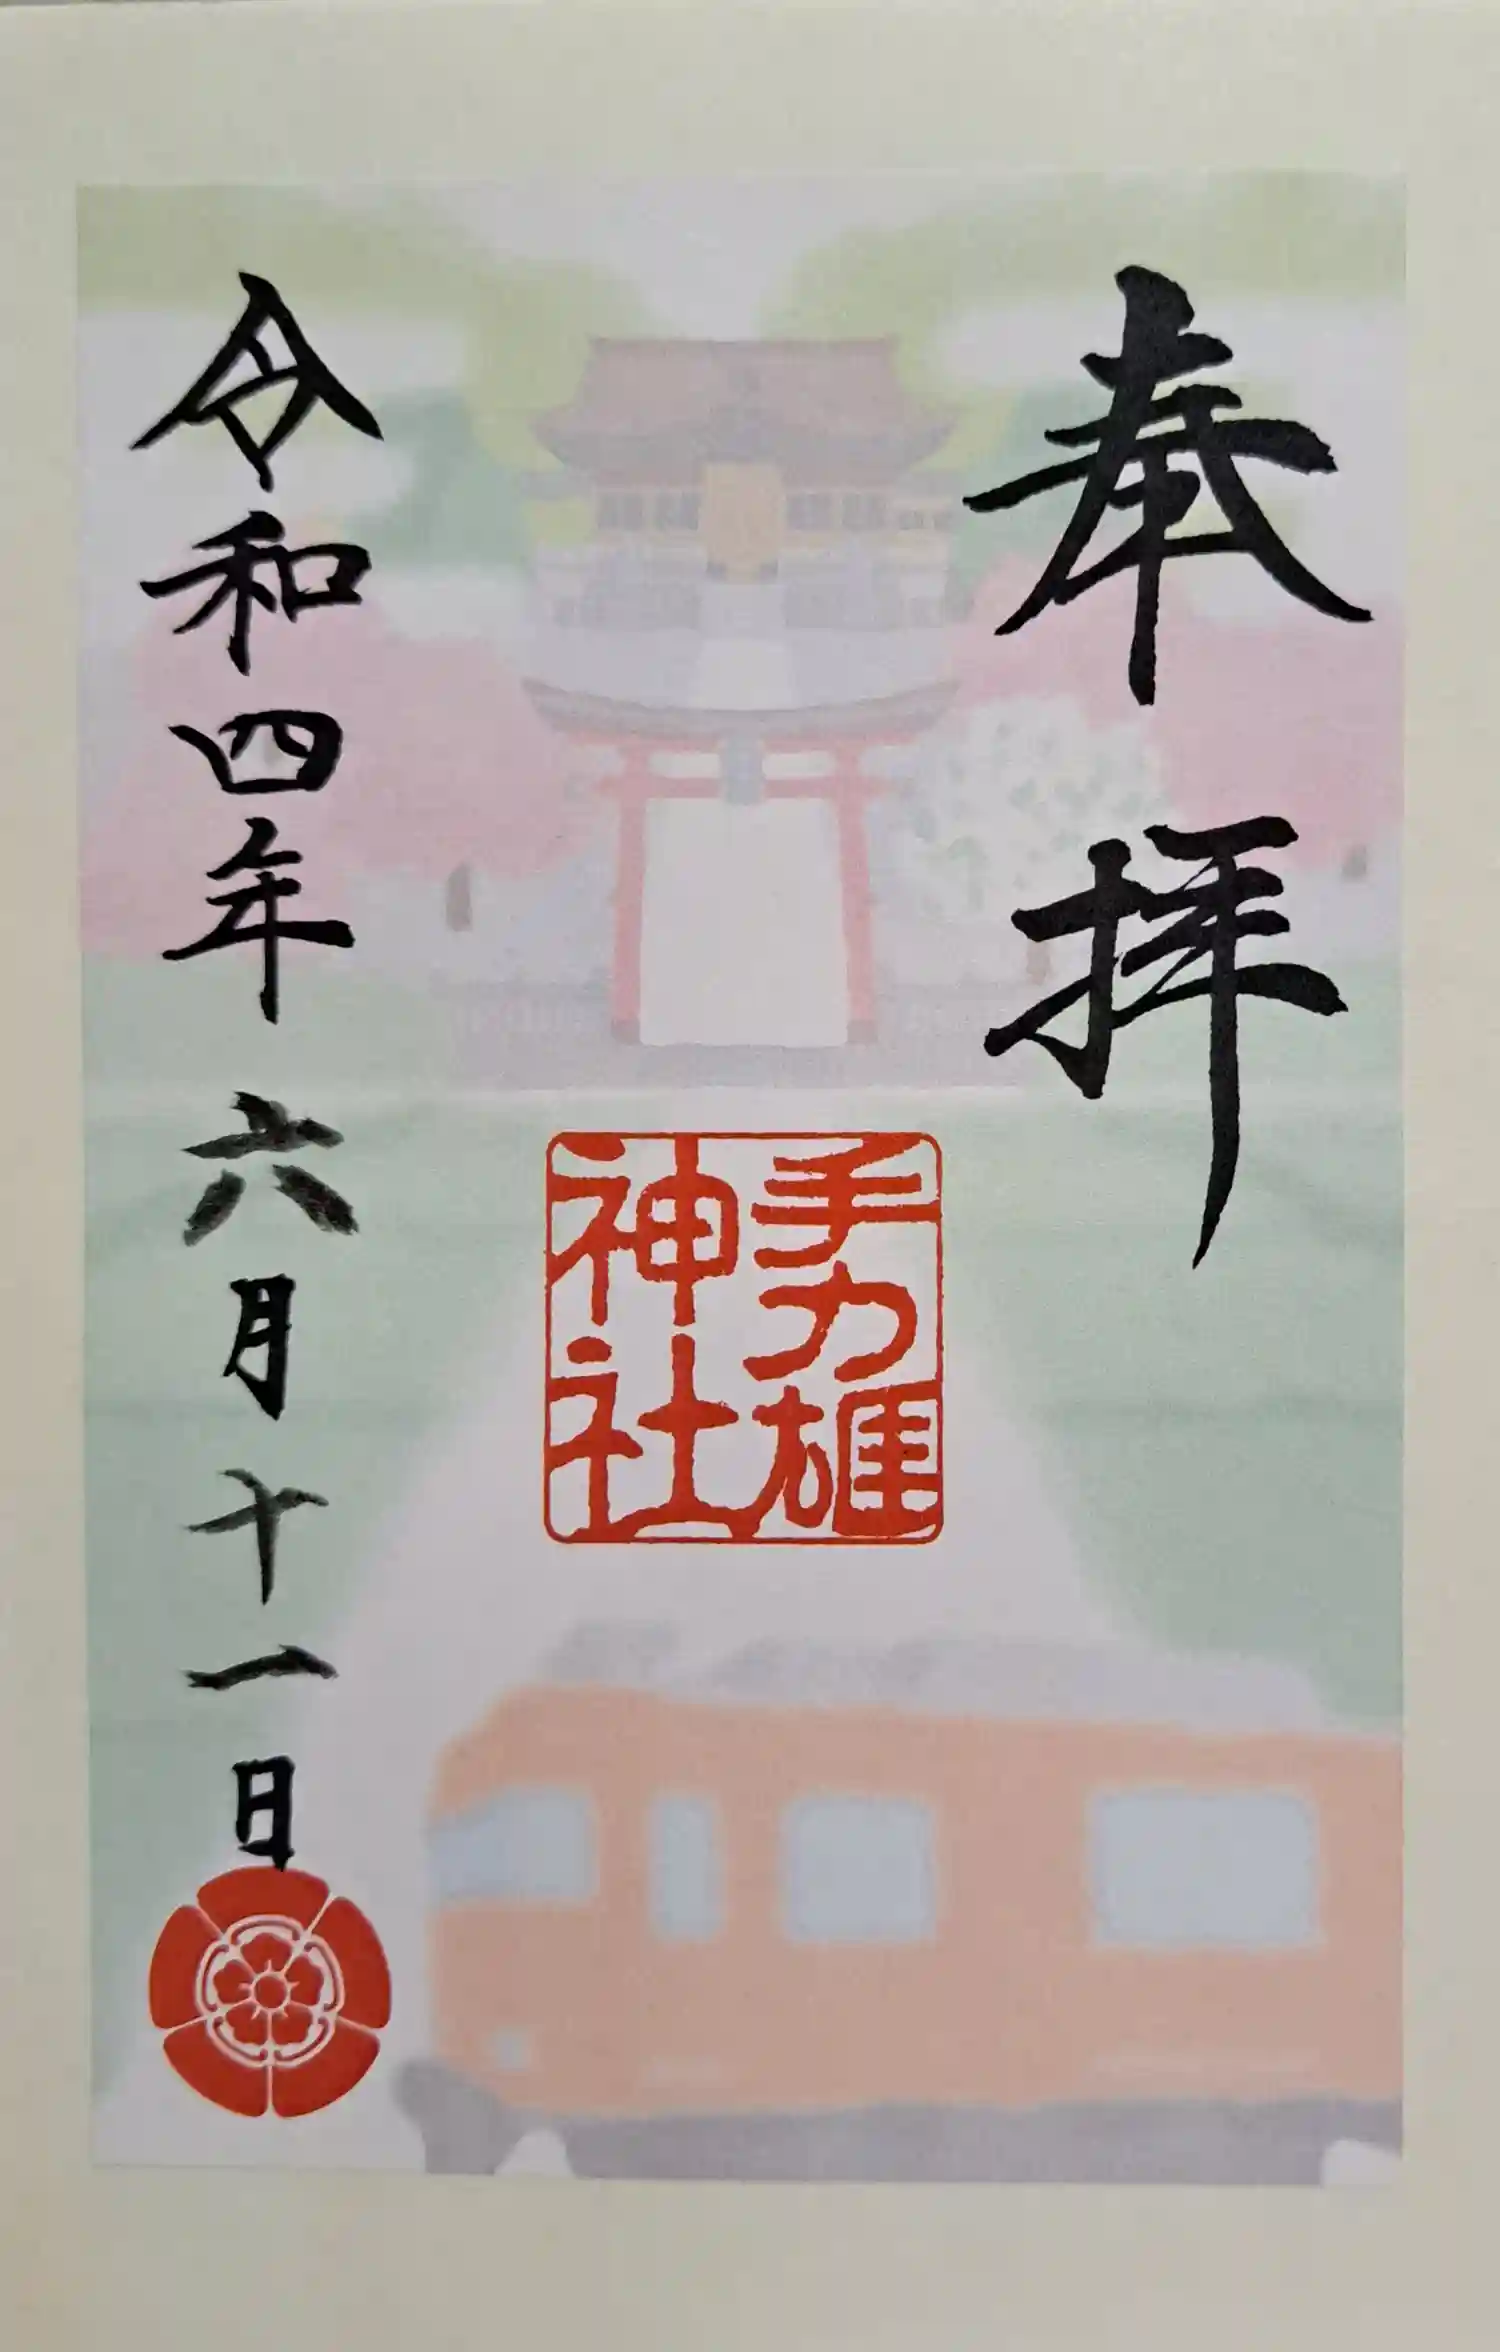 奉拝
手力雄
神社
令和四年六月十一日